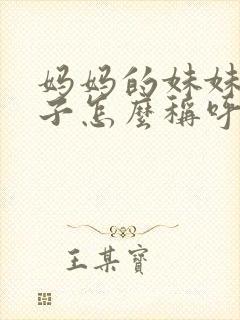 妈妈的妹妹
子怎麼稱呼
王某寶